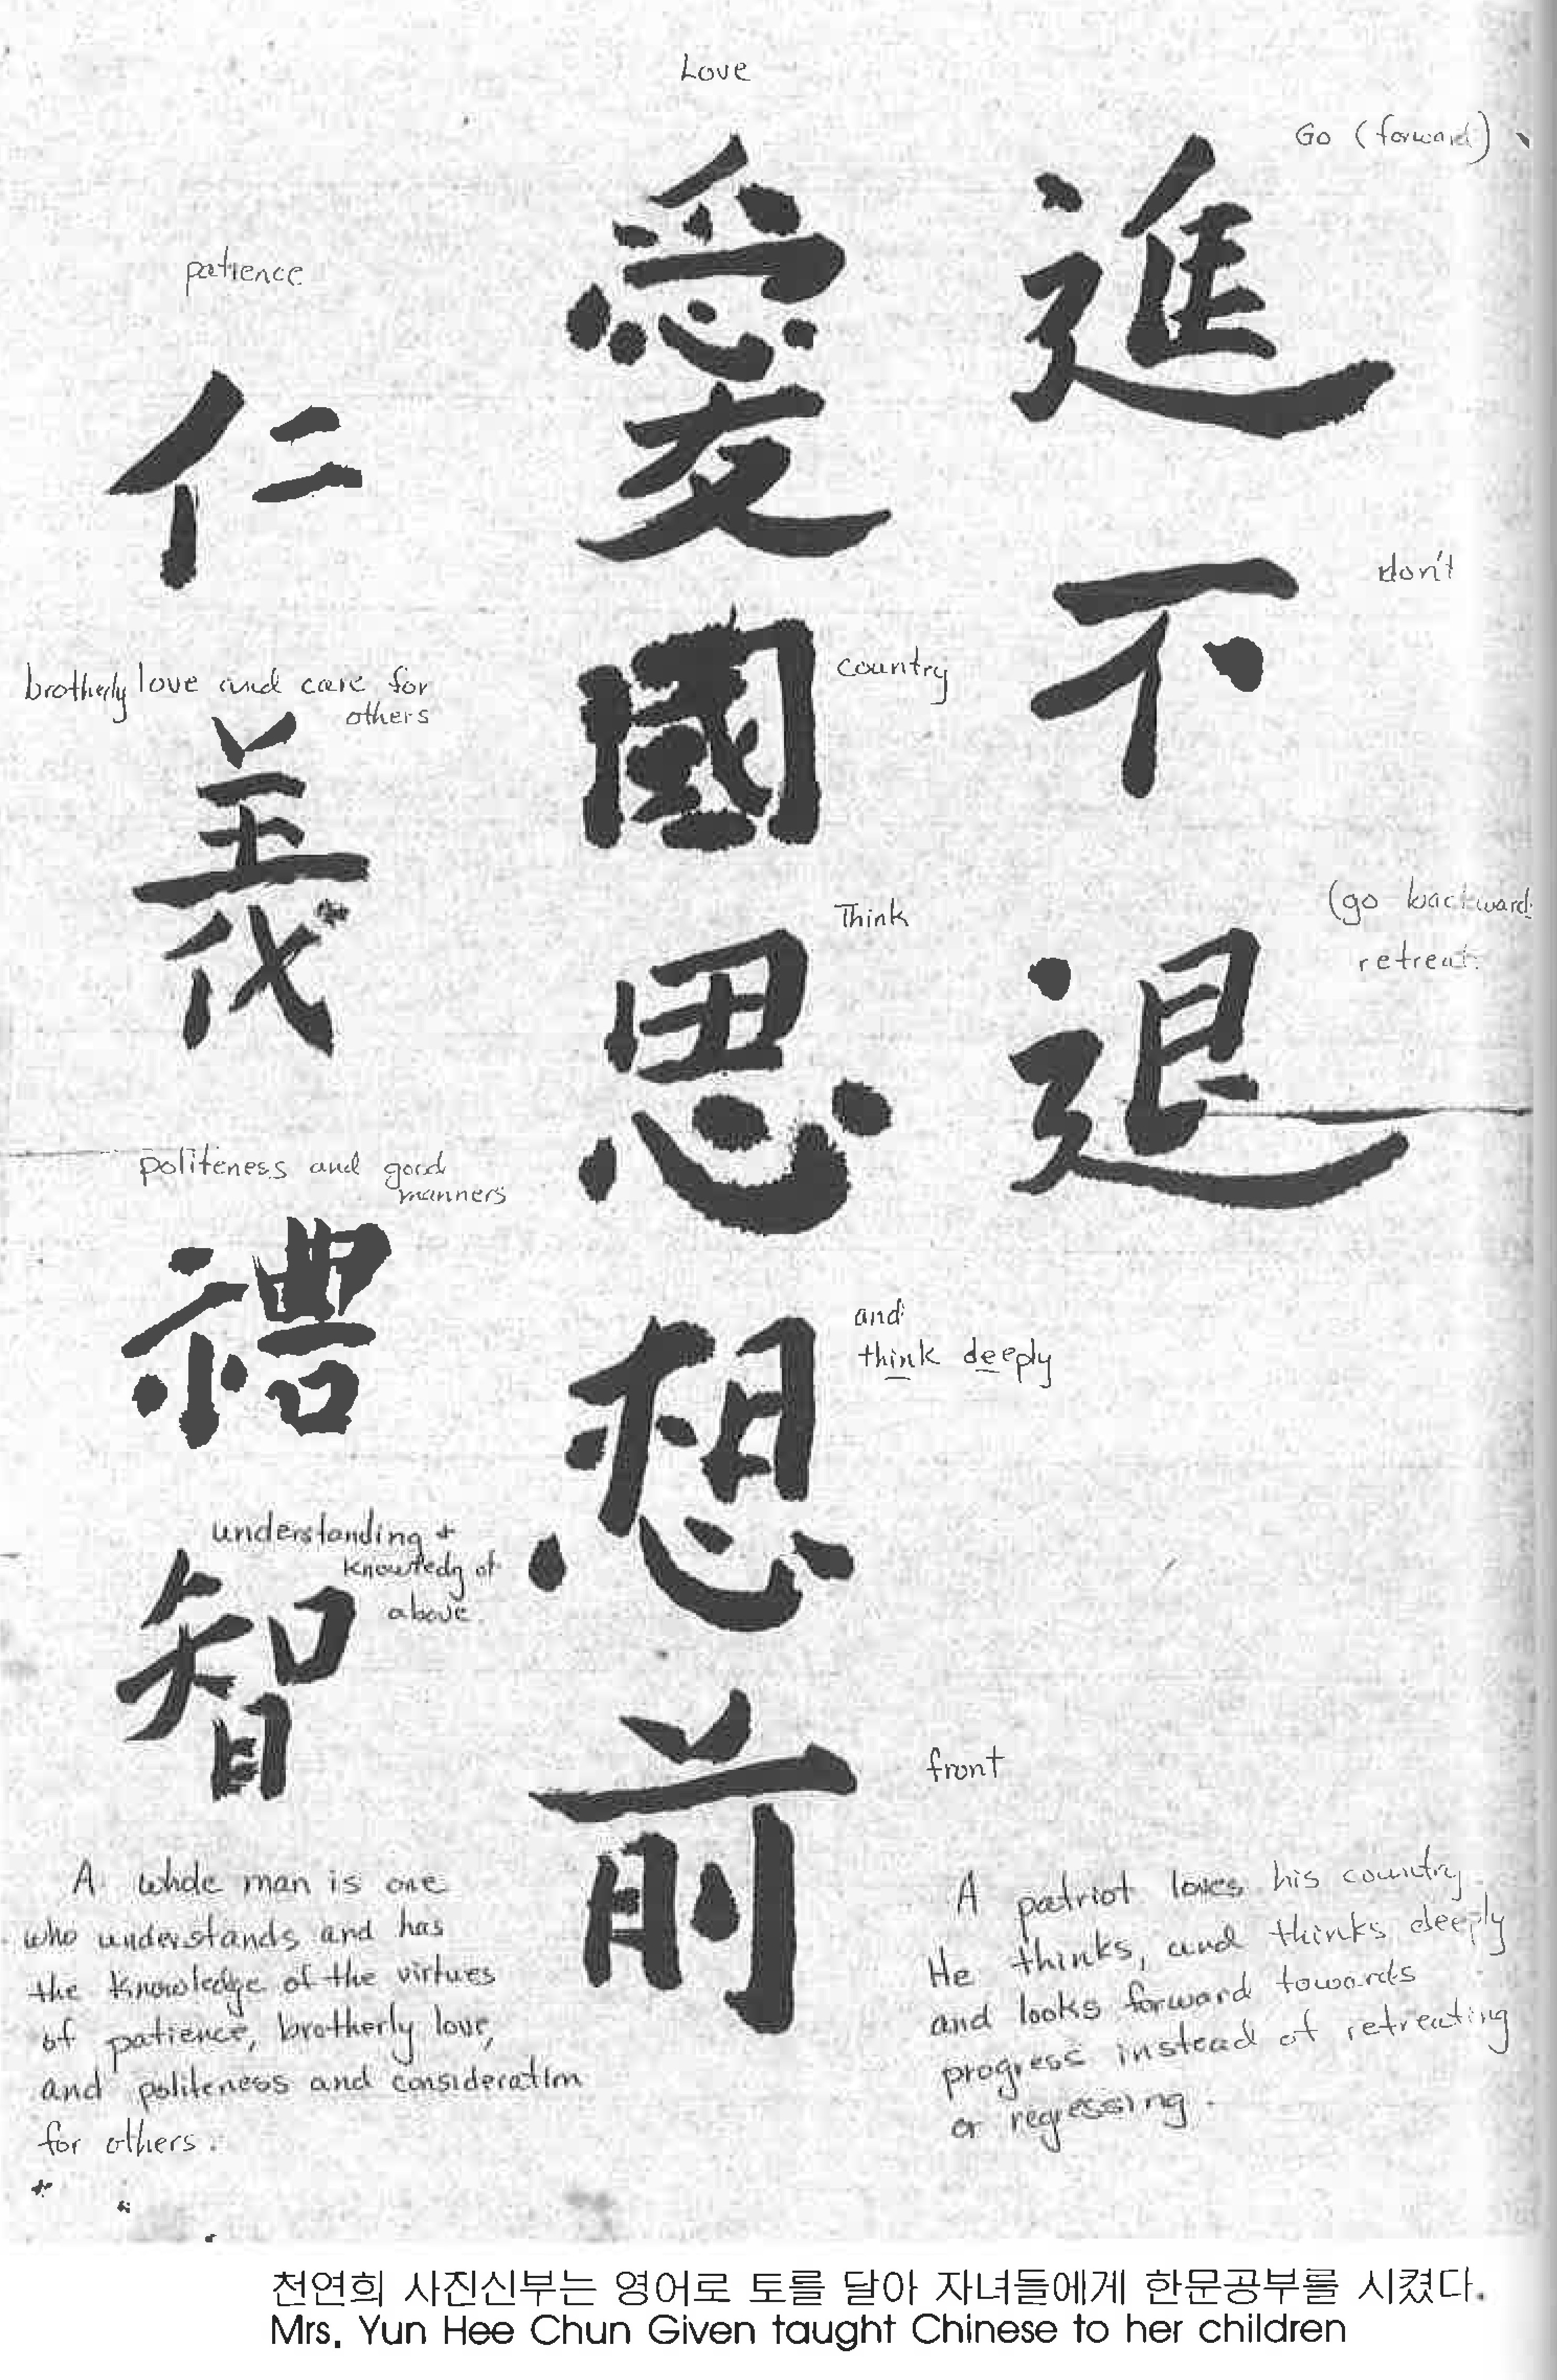 Love
Go (forward)
patience
進
愛
仁
don't
不
brotherly love and care for
others
國
country
義
(go backward
retreat
Think
退
思
politeness and good
manners
禮
and
think deeply
想
understanding +
knowledg of
above
智
front
前
A whole man is one
who understands and has
the knowledge of the virtues
of patience, brotherly love,
and politeness and consideration
for others.
A patriot loves his country
He thinks, and thinks deeply
and looks forward towards
progress instead of retreating
or regressing.
천연희 사진신부는 영어로 토를 달아 자녀들에게 한문공부를 시켰다.
Mrs. Yun Hee Chun Given taught Chinese to her children